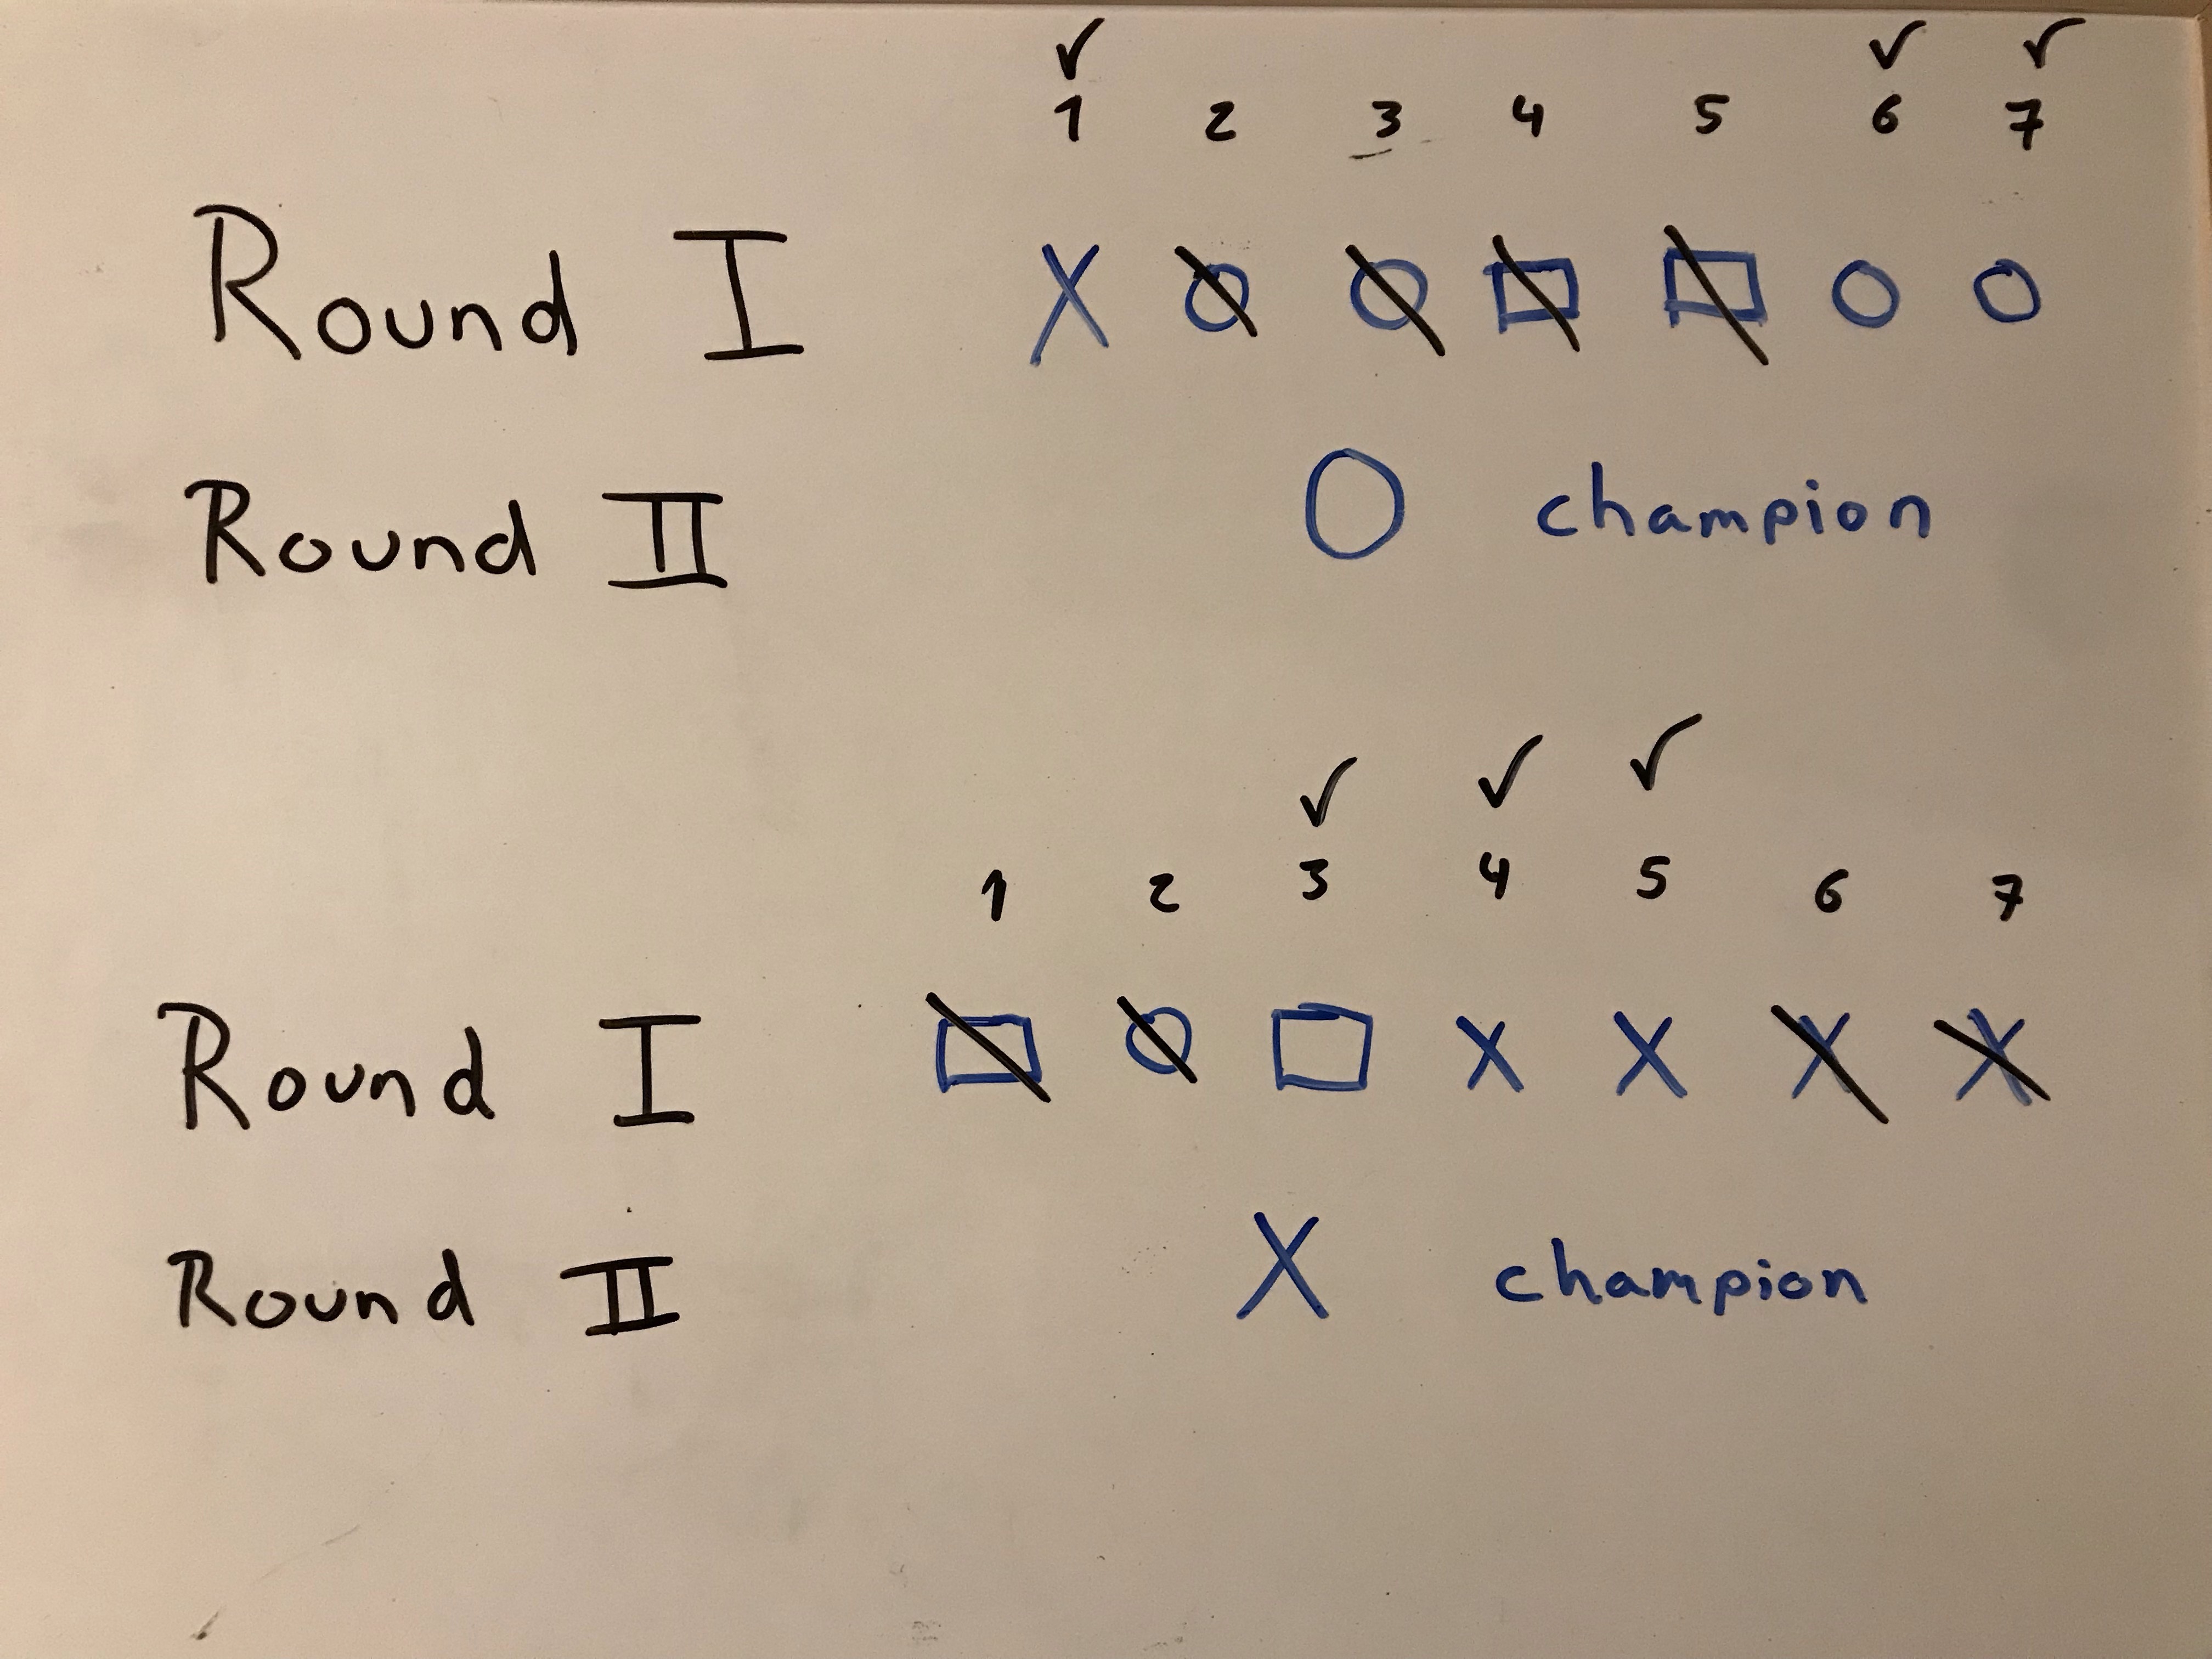 ✓ ✓ ✓
1 2 3 4 5 6 7
Round I X O O □ □ O O
Round II O champion
✓ ✓ ✓
1 2 3 4 5 6 7
Round I □ O □ X X X X
Round II X champion